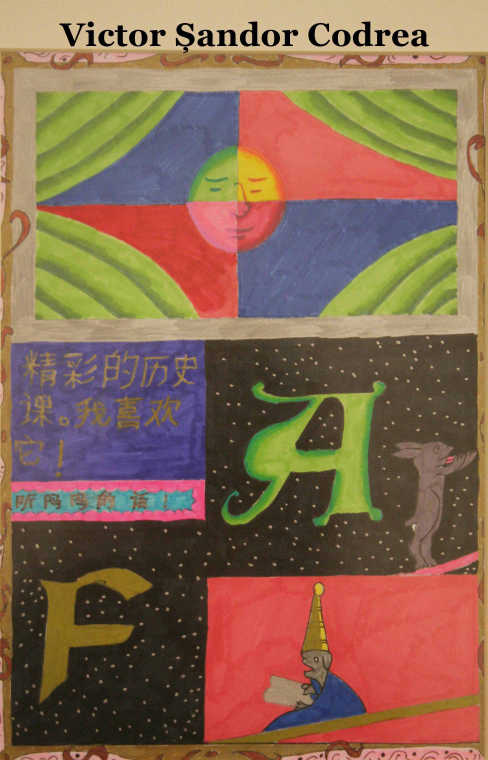 Victor Șandor Codrea
精彩的历史
课。我喜欢
它！
听妈妈的话！
A
F